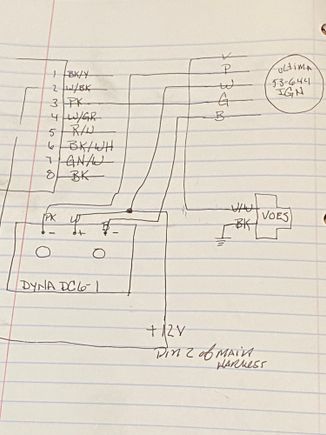 V
P
W
G
B
ULTIMA
53-644
IGN
1 BK/Y
2 W/BK
3 PK
4 W/GR
5 R/W
6 BK/WH
7 GN/W
8 BK
PK W B
- + -
V/W
BK
VOES
DYNA DC6-1
+12V
PIN 2 of MAIN
HARNESS